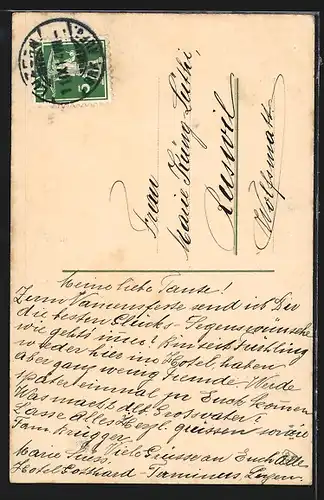 Frau
Marie Küng-Lüthi,
Reuswil
Wolfsmatt
Meine liebe Tante!
Zum Namensfeste send ich Dir
die besten Glücks- Segenswünsche
wie gehts immer? Bin seit Frühling
wieder hier im Hotel, haben
aber ganz wenig fremde. Werde
später einmal zu Euch kommen
Was macht der Grossvater?
Lasse alles Herzl. grüssen sowie
Fam.
Marie Viele Grüsse an Euch alle
Hotel Gotthard - Luzern.